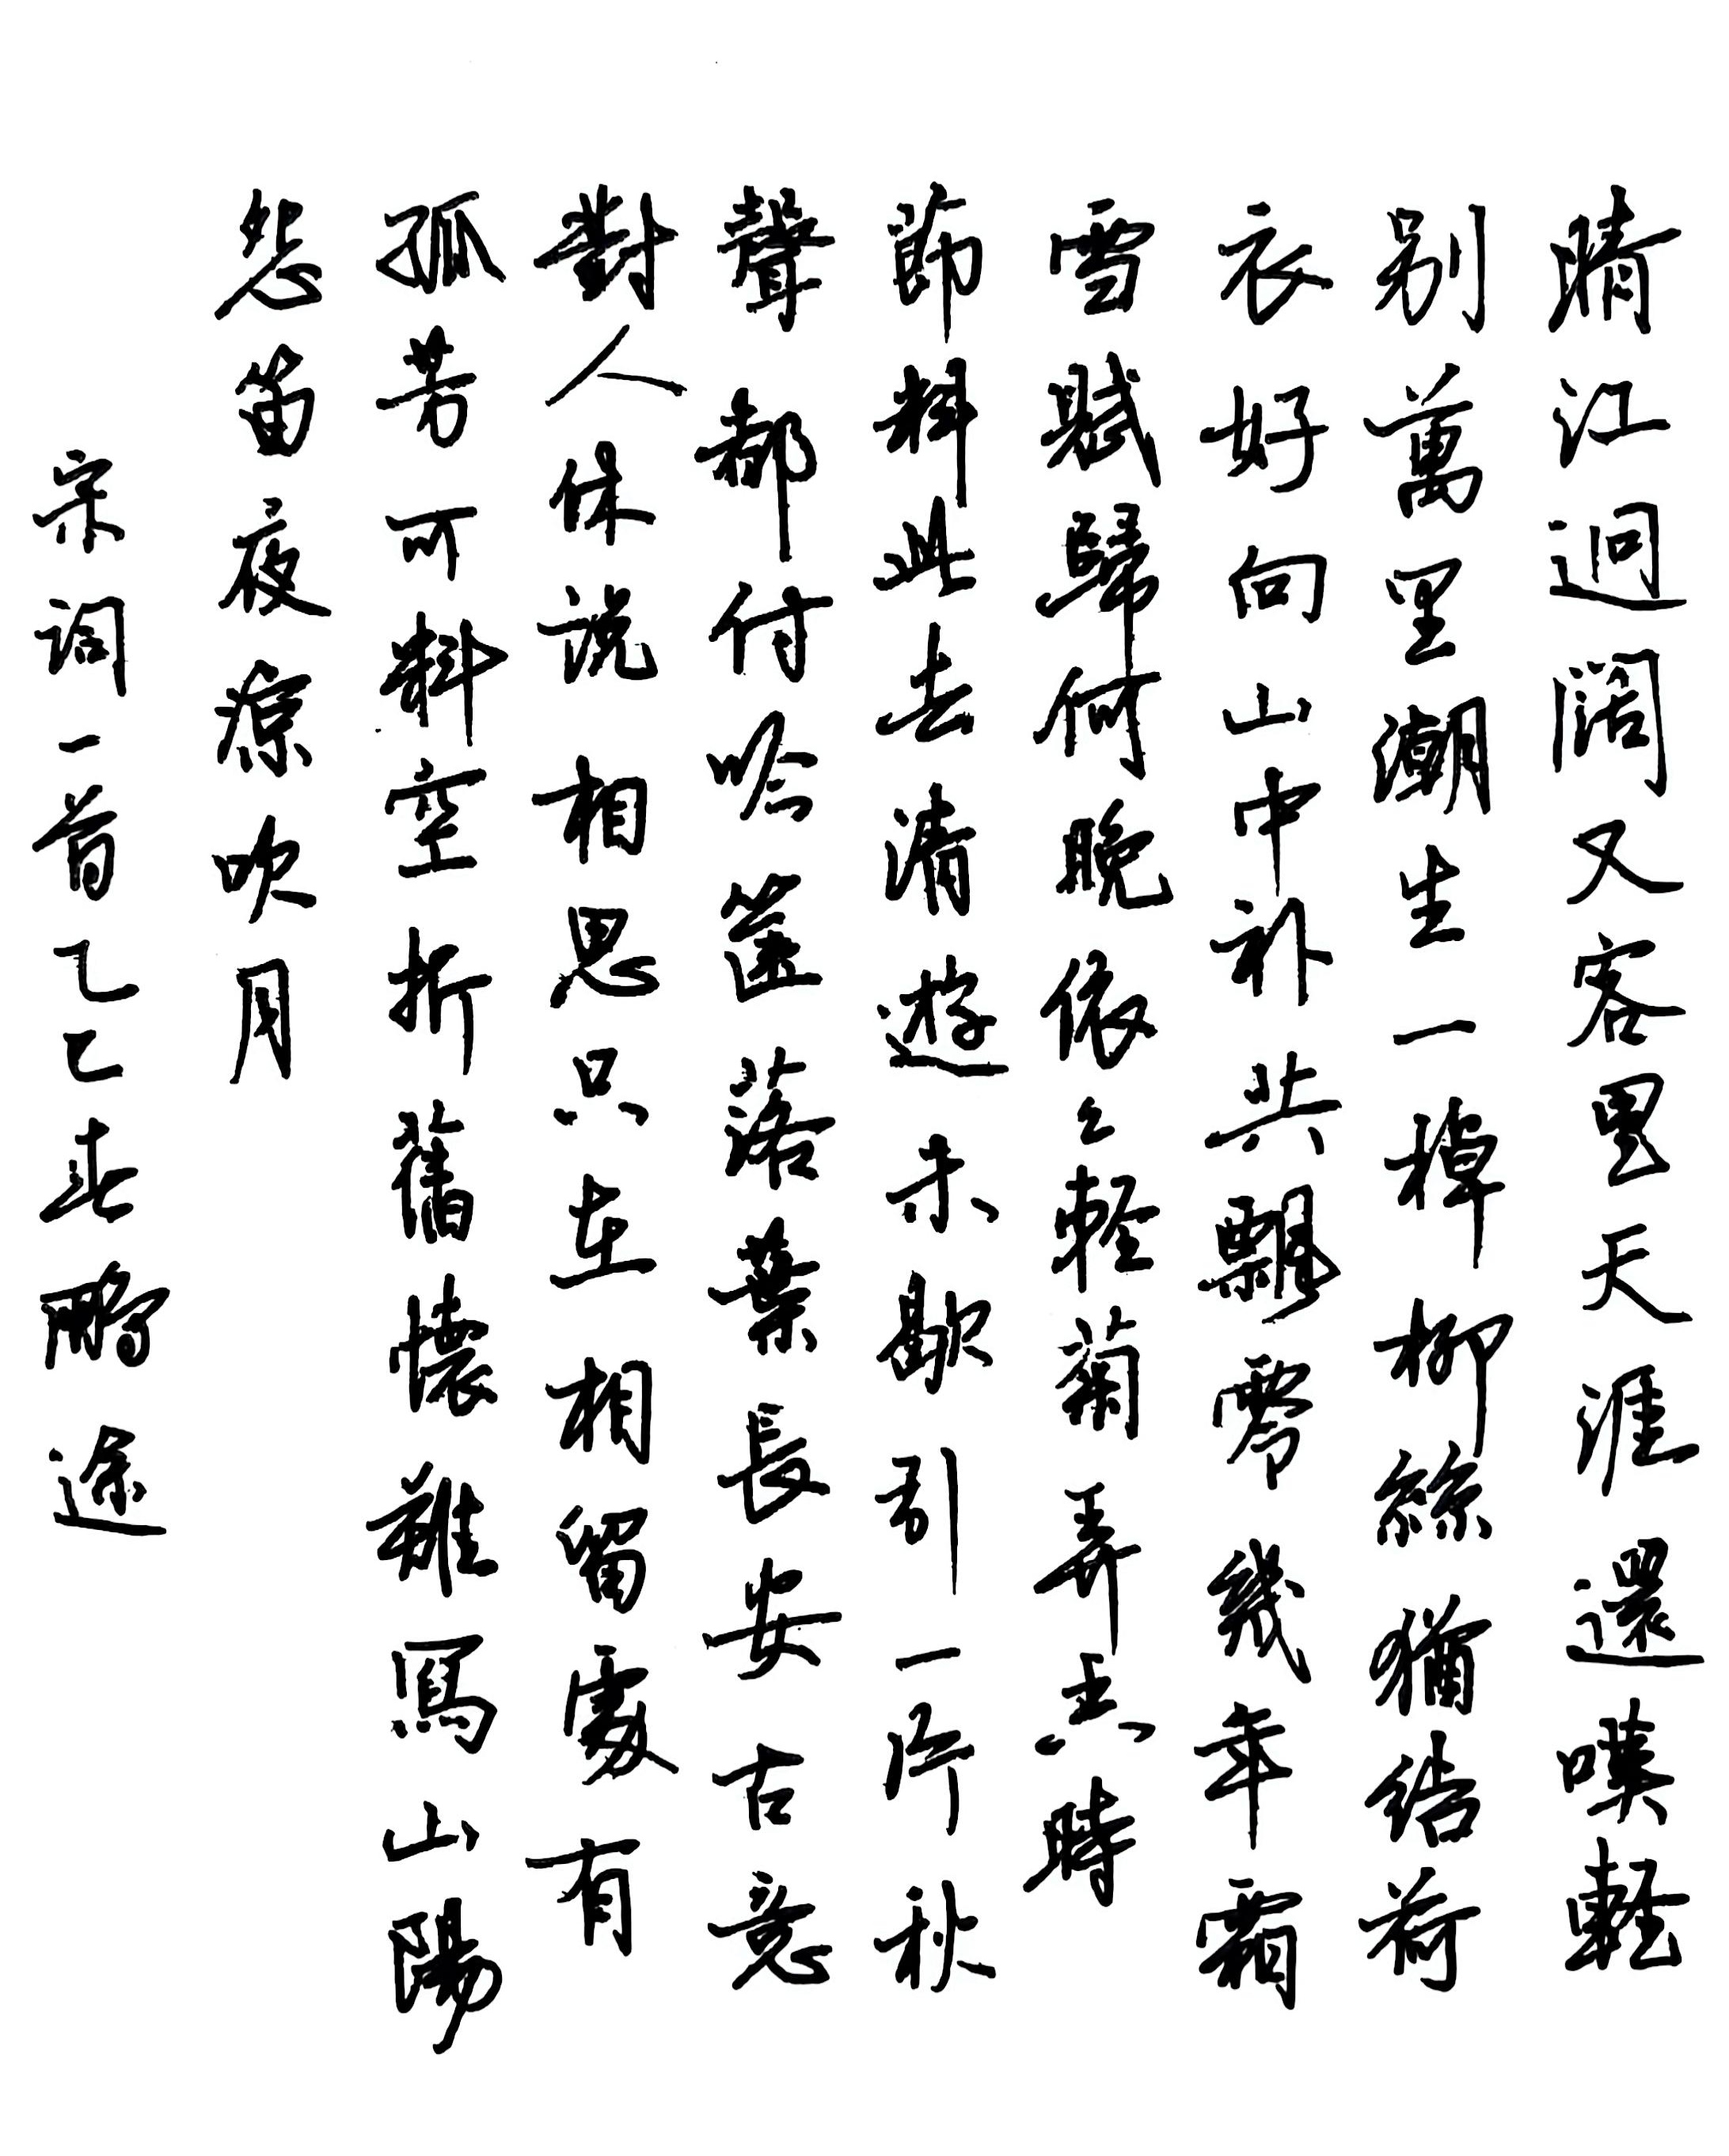 晴江迥闊又客里天涯還嘆輕
別萬里潮生一棹柳絲猶結荷
衣好向山中补共飄零幾年霜
雪賦歸何晚依〻輕菊弄香時
節料此去清遊未歇引一片秋
聲都付吟篋落葉長安古意
對人休说相思只在相留處有
孤芳可料空折舊懷難寫山陽
怨笛夜凉吹月
宋词一首乙巳鹏途